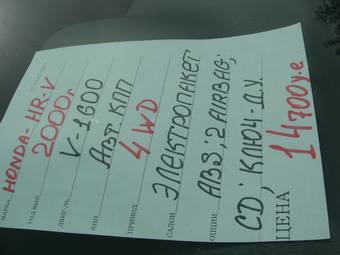 МАРКА HONDA-HR-V
ГОД ВЫП. 2000г
ДВИГ-ЛЬ V-1,600
КПП АВТ. КПП
ПРИВОД 4WD
САЛОН ЭЛЕКТРОПАКЕТ
ОПЦИИ ABS; 2 AIRBAG;
CD; КЛЮЧ-Д.У.
ЦЕНА 14700у.е